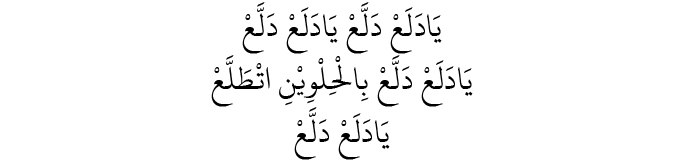 يَادَلَعْ دَلَّعْ يَادَلَعْ دَلَّعْ
يَادَلَعْ دَلَّعْ بِالْحِلْوِيْنِ اتْطَلَّعْ
يَادَلَعْ دَلَّعْ